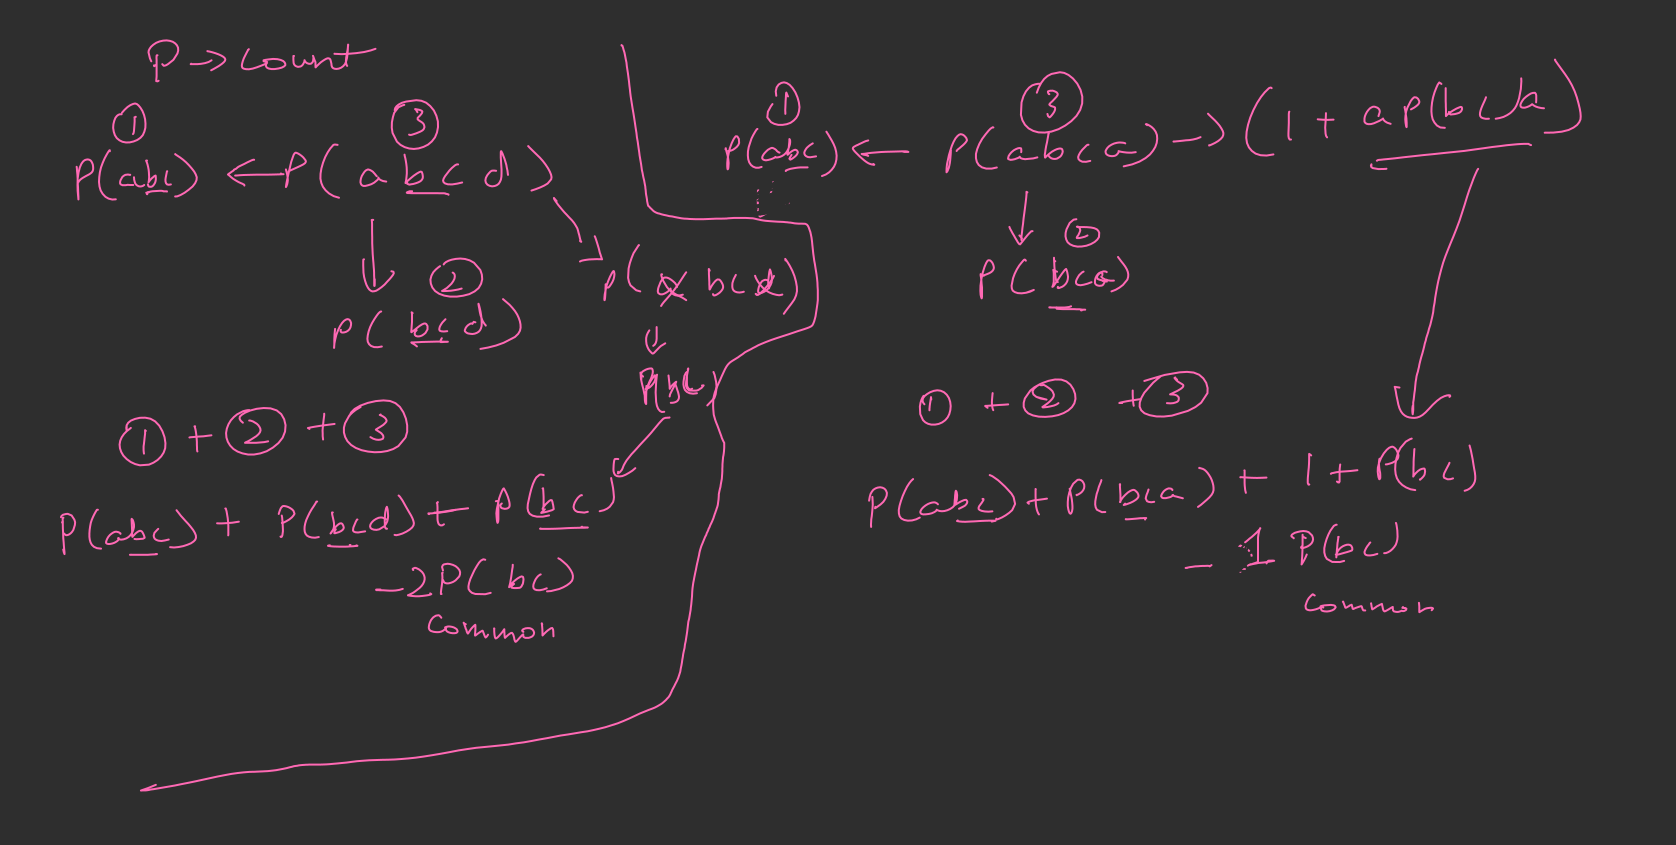 P → count
①
③
P(abc) ← P(abcd)
P(abcd)
②
P(bcd)
P(bc)
① + ② + ③
P(abc) + P(bcd) + P(bc)
-2P(bc)
common
①
③
P(abc) ← P(abca) → (1 + aP(bc)a)
②
P(bca)
① + ② + ③
P(abc) + P(bca) + 1 + P(bc)
- 1 P(bc)
common